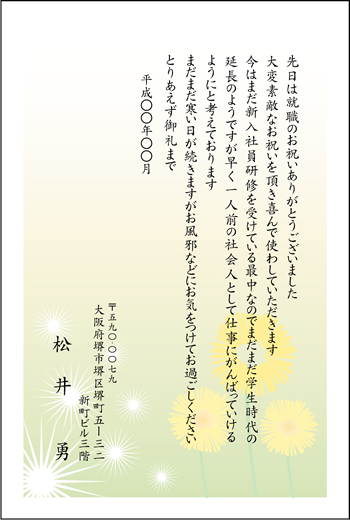 先日は就職のお祝いありがとうございました
大変素敵なお祝いを頂き喜んで使わしていただきます
今はまだ新入社員研修を受けている最中なのでまだまだ学生時代の
延長のようですが早く一人前の社会人として仕事にがんばっていける
ようにと考えております
まだまだ寒い日が続きますがお風邪などにお気をつけてお過ごしください
とりあえず御礼まで
平成〇〇年〇〇月
〒五九〇〇〇七九
大阪府堺市堺区堺町五ー三二
新町ビル三階
松井 勇